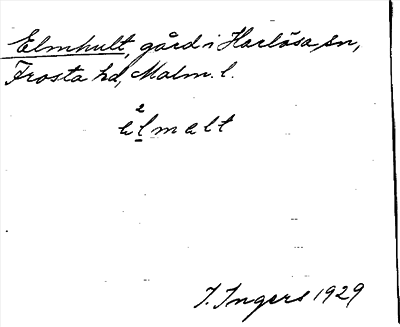 Elmhult, gård i Harlösa sn,
Frosta hd, Malm. l.
2
l m a l t
I. Ingers 1929